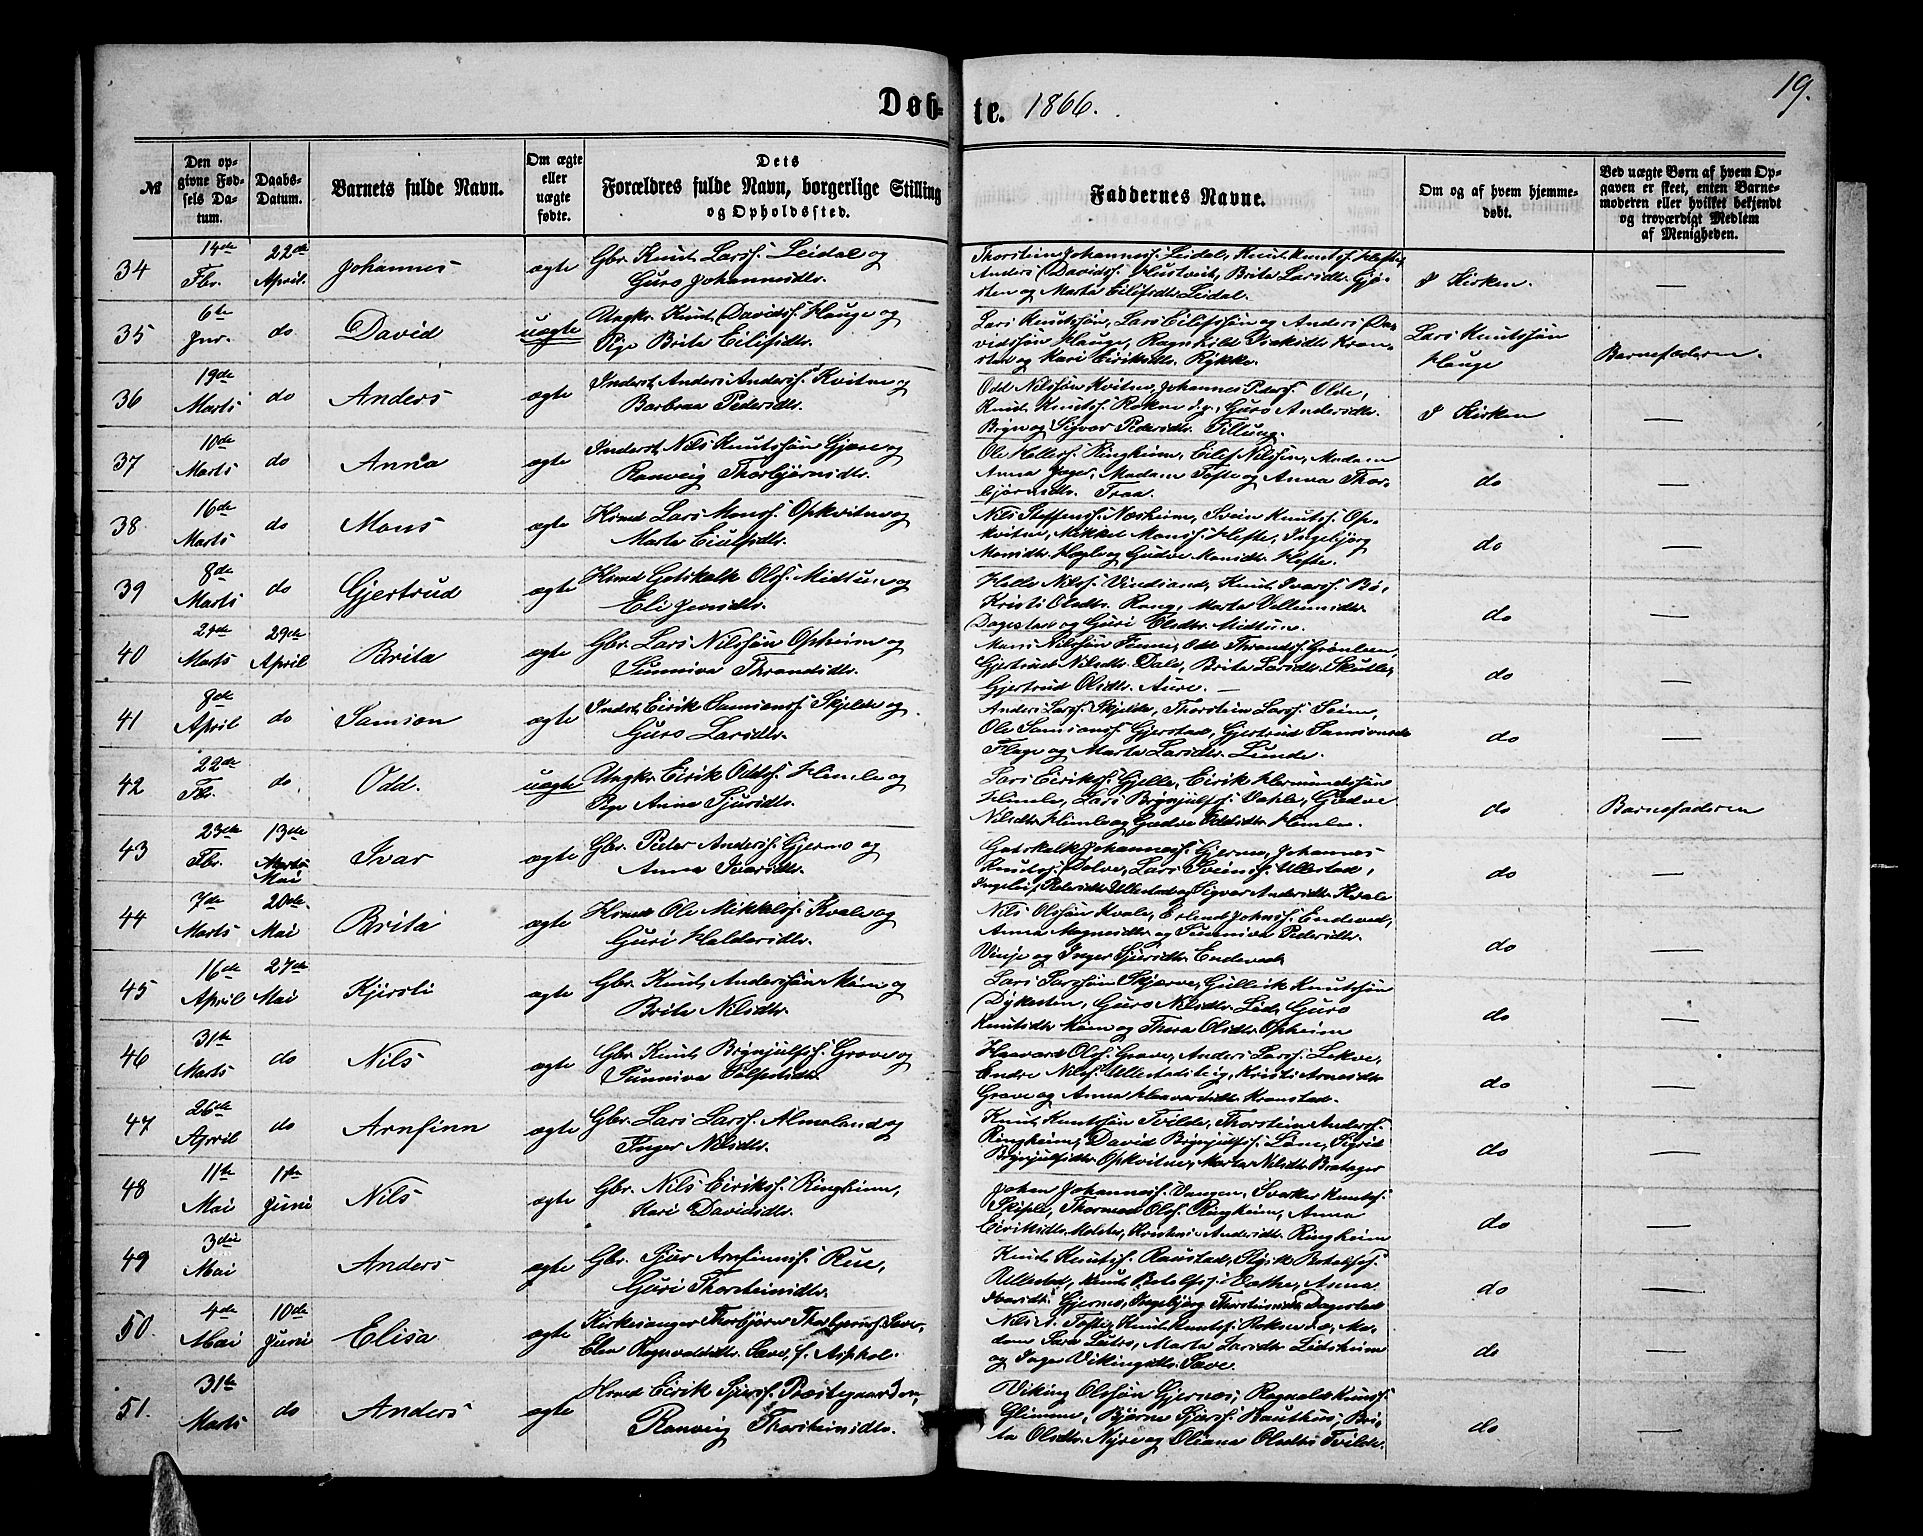 Døb-te. 1866.
19.
№
Den opgivne Fødsels Datum.
Daabs-Datum.
Barnets fulde Navn.
Om ægte eller uægte fødte.
Dets Forældres fulde Navn, borgerlige Stilling og Opholdssted.
Faddernes Navne.
Om og af hvem hjemmedøbt.
Ved uægte Børn af hvem Opgaven er skeet, enten Barnemoderen eller hvilket bekjendt og troværdigt Medlem af Menigheden.
34 14de Fbr. 22de April. Johannes ægte Gbr. Knut Larss. Leidal og
Guro Johannesdtr.
Thorstein Johanness. Leidal, Knut Knutss. Hefte,
Anders Davidss. Hustveit, Brita Larsdtr. Gjø-
sten og Marta Eilifsdtr. Leidal.
I Kirken. —
35 6te Jnr. do David uægte Ungkr. Knut Davidss. Hauge og
Pige Brita Eilifsdtr.
Lars Knutssøn, Lars Eilifssøn og Anders Da-
vidssøn Hauge, Ragnhild
og Kari Eiriksdtr. Rykke.
Lars Knutssøn
Hauge
Barnefaderen.
36 19de Marts do Anders ægte Inderst Anders Anderss. Kvitne og
Barbraa Pedersdtr.
Odd Nilssøn Kvitne, Johannes Peders. Olde,
Knut Knutss. Rokne d.y., Guro Andersdtr.
Bryn og Sigvor Pedersdtr. Tillung.
I Kirken —
37 10de Marts do Anna ægte Inderst Nils Knutssøn Gjøre og
Ranveig Thorbjørnsdtr.
Ole Helless. Ringheim, Eilef Nilssøn, Madam
Anna Jager, Madam Tofte og Anna Thor-
bjørnsdtr. Traa.
do —
38. 16de Marts do Mons ægte Hmd Lars Monss. Opkvitne og
Marta Eilifsdtr.
Nils Steffenss. Næsheim, Svein Knutss. Op-
kvitne, Mikkel Monss. Hefte, Ingebjørg
Monsdtr. og Gudve Monsdtr. Hefte.
do —
39 8de Marts do Gjertrud ægte Hmd Gotskalk Olss. Midtun og
Eli Jensdtr.
Helle Nilss. Vindsand, Knut Ivarss. Bø,
Kristi Olsdtr. Rong, Marta Villumsdtr.
Dagestad og Guri Olsdtr. Midtun.
do —
40 Marts 29de April Brita ægte Gbr. Lars Nilssøn Opheim og
Sunniva Throndsdtr.
Mons Nilssøn Fenne, Odd Throndss. Grønlien,
Gjertrud Nilsdtr. Dale, Brita Larsdtr. Skutle,
Gjertrud Olsdtr. Aure. —
do —
41 8de April do Samson ægte Inderst Eirik Samsonss. Skjelde og
Guro Larsdtr.
Anders Larss. Skjelde, Thorstein Larss. Seim,
Ole Samsonss. Gjerstad, Gjertrud Samsonsdr
Flage og Marta Larsdtr. Lunde.
do —
42 22de Fb. do. Odd. uægte Ungkr. Eirik Oddss. Himle og
Pige Anna Sjursdtr.
Lars Eirikss. Gjelle, Eirik Hermundssøn
Himle, Lars Brynjulfss. Væhle, Gudve
Nilsdtr. Himle og Gudve Oddsdtr. Himle.
do Barnefaderen
43 23de Fbr. 13de Marts Mai Ivar ægte Gbr. Peder Anderss. Gjerno og
Anna Ivarsdtr.
Gotskalk Johanness. Gjerno, Johannes
Knudss. Dolve, Lars Sveinss. Ullestad,
Pedersdtr. Ullestad og Sigvor Andersdtr. Kvale
do —
44 7de Marts 20de Mai Brita ægte Hmd Ole Mikkelss. Kvale og
Guri Haldorsdtr.
Nils Olssøn Kvale, Erlend Johnss. Endeved,
Anna Magnesdtr. og Sunniva Pedersdtr.
Vinje og Inger Sjursdtr. Endeved.
do —
45 16de April 27de Mai Kjirsti ægte Gbr. Knut Anderssøn Møen og
Brita Nilsdtr.
Lars Larssøn Skjerve, Gulleik Knutssøn
Dykesten, Guro Nilsdtr. Lid, Guro
Knutsdtr. Møen og Thora Olsdtr. Opheim
do —
46 31te Marts do Nils ægte Gbr. Knut Brynjulfss. Grove og
Sunniva
Haavard Olss. Grove, Anders Larss. Lekve,
Endre Nilss. Ullestadsteig, Kristi Arnesdtr
Grove og Anna Haavardsdtr. Kronstad.
do —
47 26de April do Arnfinn ægte Gbr. Lars Larss. Almeland og
Inger Nilsdtr.
Knut Knutssøn Tvilde, Thorstein Anderss.
Ringheim, David Brynjulfss. Løne, Sigrid
Brynjulfsdtr. Opkvitne, Marta Nilsdtr. Bratager
do —
48 11te Mai 1te Juni Nils ægte Gbr. Nils Eirikss. Ringheim,
Kari Davidsdtr.
Johan Johanness. Vangen, Sverker Knutss.
Skiple, Thormod Olss. Ringheim, Anna
Eiriksdtr. Molster, Andersdtr. Ringheim
do —
49 3die Mai Anders ægte Gbr. Sjur Arnfinnss. Rue,
Guri Thorsteinsdtr.
Knut Knutss. Raustad, Botolfss.
Rekkestad, Knut Botolfss. Anna
Ivarsdtr. Gjerno, Ingebjørg Thorsteinsdtr. Dagestad
do —
50. 4de Mai 10de Juni Elisa ægte Kirkesanger Thorbjørn Thorbjørns. Save,
Elen Ragnvaldsdtr. Save, f. Asphol.
Nils J. Tofte, Knut Knutss. Rokne d.æ., Ma-
dam Sara Lutro, Marta Larsdtr. Lidsheim
og Inger Vikingsdtr. Save.
do —
51. 31te Marts do Anders ægte Hmd Eirik Sjurss. Præstegaarden,
Ranveig Thorsteinsdtr.
Viking Olssøn Gjernes, Ragnald Knuts.
Glimme, Bjørne Sjurss. Hauthus, Bri-
ta Olsdtr. Nyre og Oliana Olsdtr Tvilde.
do —